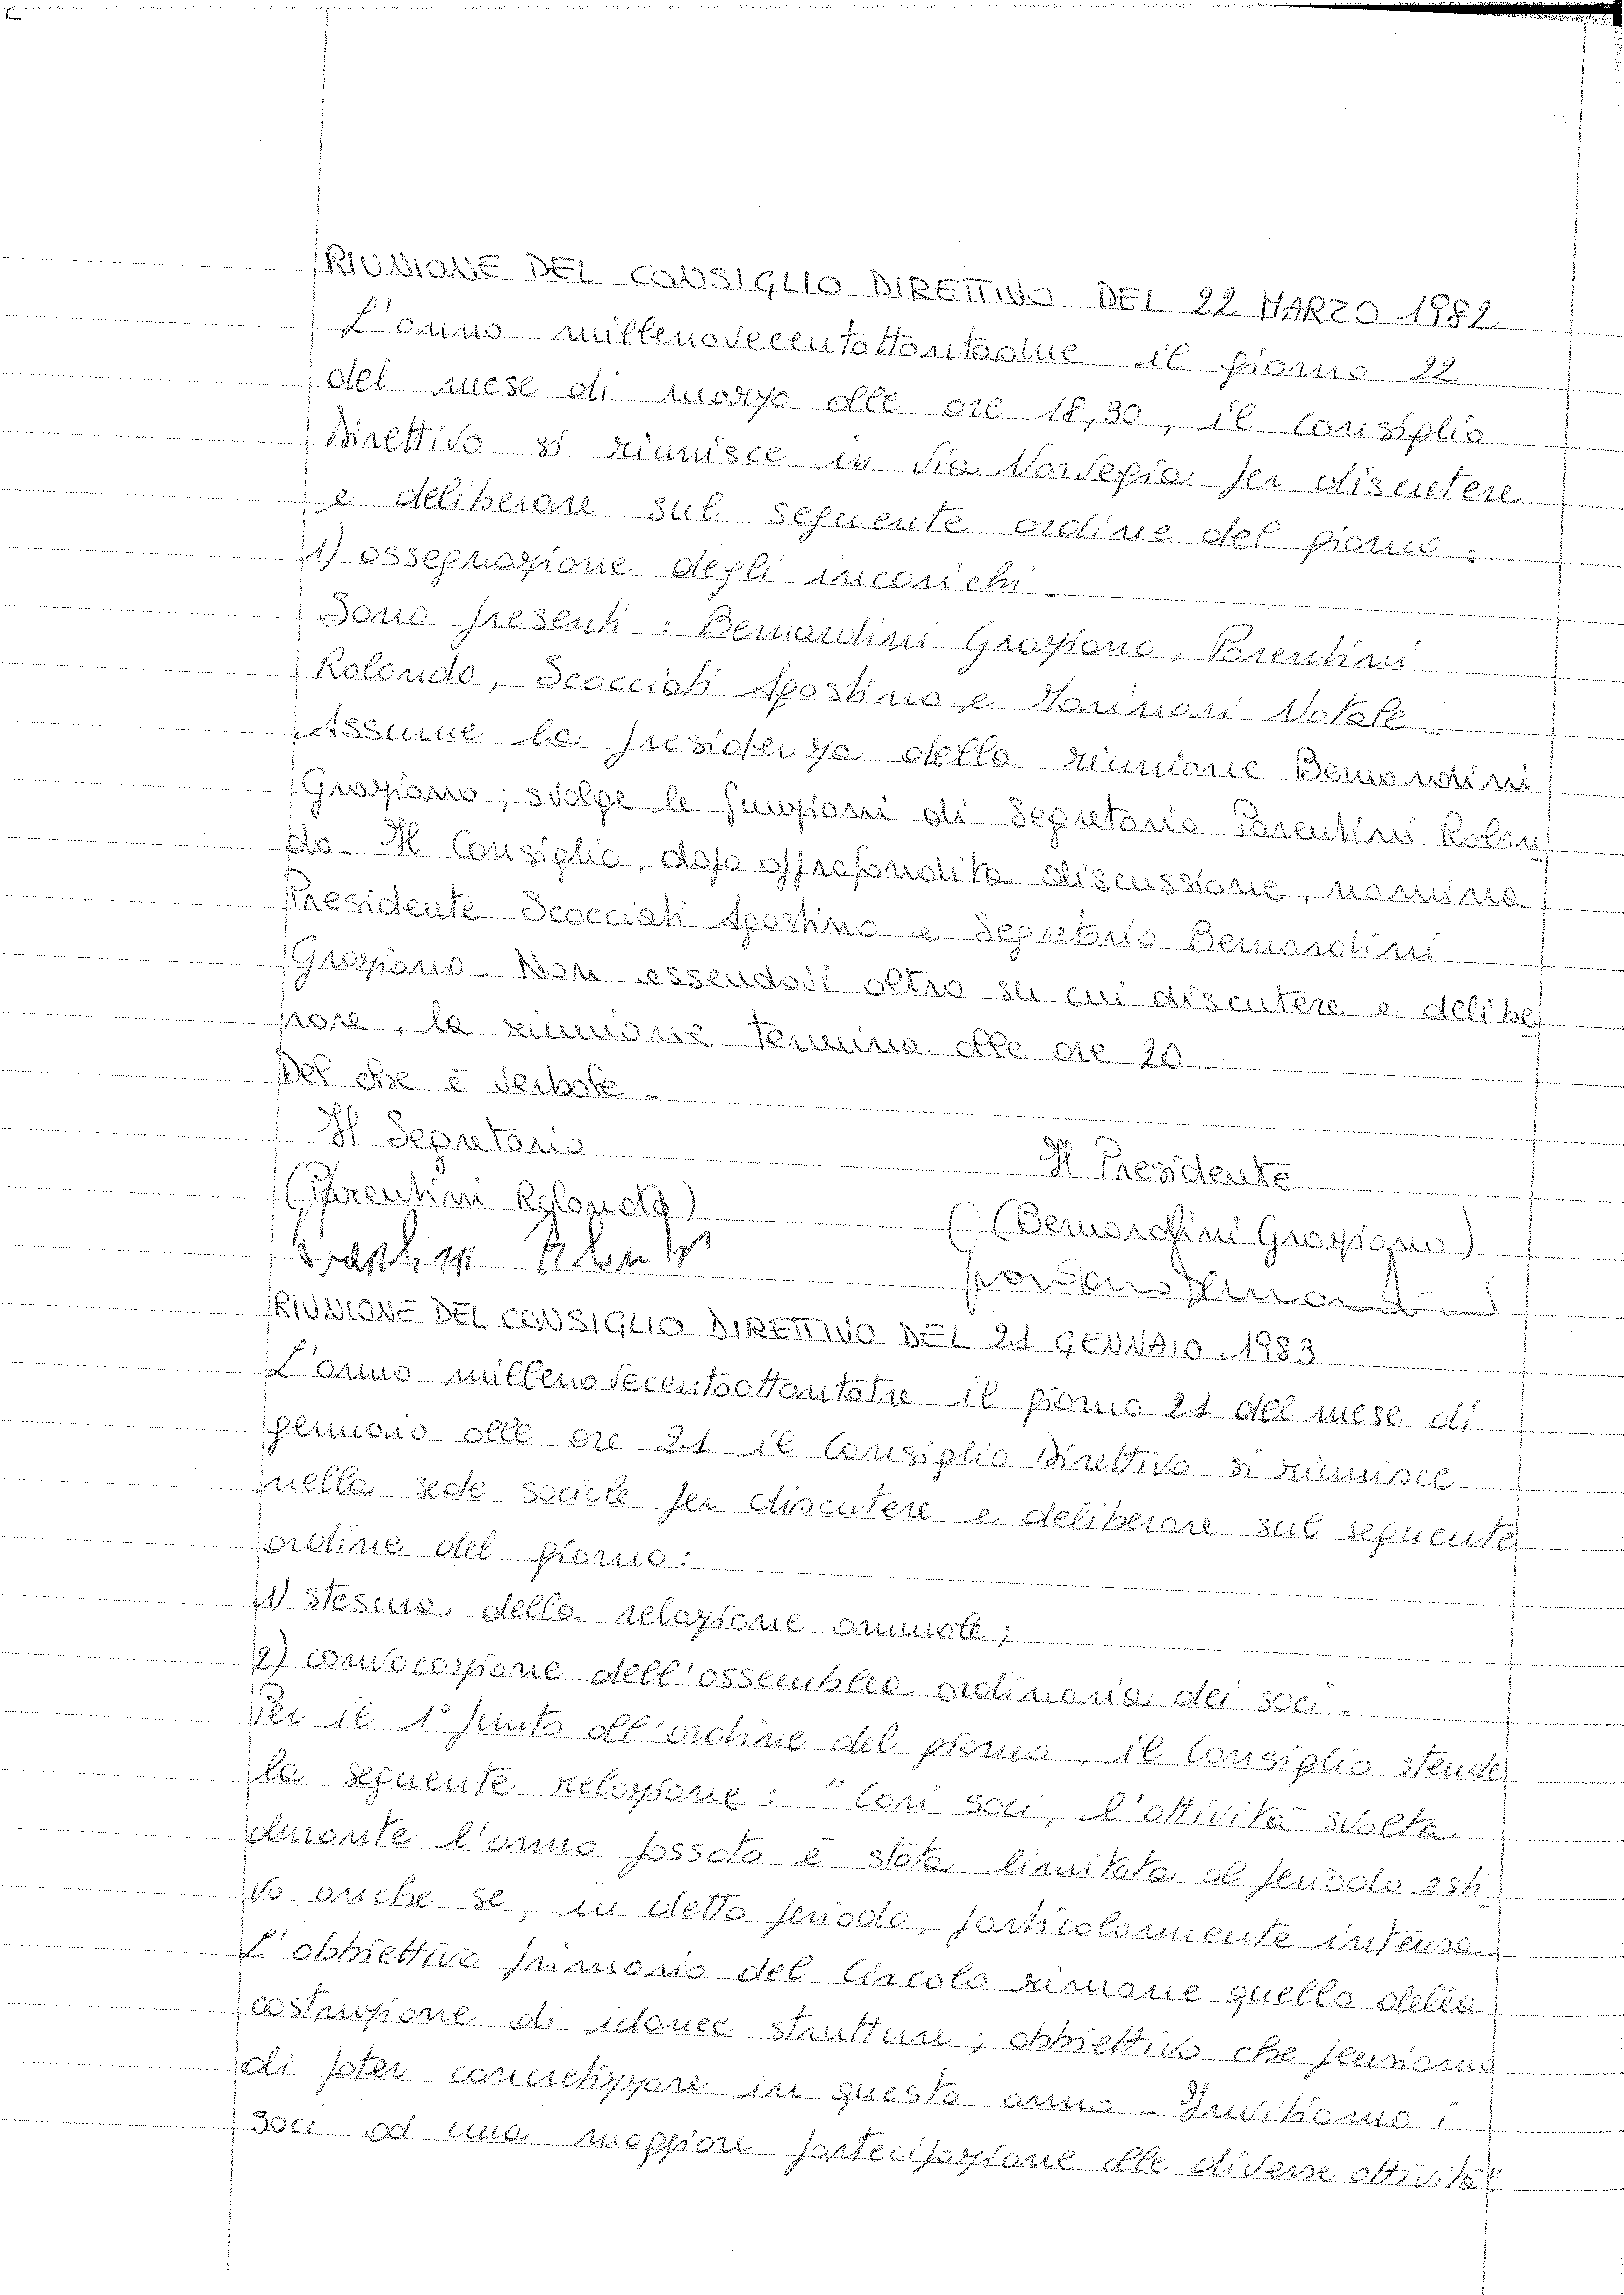 RIUNIONE DEL CONSIGLIO DIRETTIVO DEL 22 MARZO 1982
L'anno millenovecentottantadue il giorno 22
del mese di marzo alle ore 18,30, il Consiglio
Direttivo si riunisce in Via Norvegia per discutere
e deliberare sul seguente ordine del giorno:
1) assegnazione degli incarichi.
Sono presenti: Bernardini Graziano, Parentini
Rolando, Scocciati Agostino e Natale
Assume la presidenza della riunione Bernardini
Graziano; svolge le funzioni di Segretario Parentini Rolan
do. Il Consiglio, dopo approfondita discussione, nomina
Presidente Scocciati Agostino e Segretario Bernardini
Graziano. Non essendovi altro su cui discutere e delibe
rare, la riunione termina alle ore 20.
Del che è verbale.
Il Segretario
Il Presidente
(Parentini Rolando)
(Bernardini Graziano)
RIUNIONE DEL CONSIGLIO DIRETTIVO DEL 21 GENNAIO 1983
L'anno millenovecentoottantatre il giorno 21 del mese di
gennaio alle ore 21 il Consiglio Direttivo si riunisce
nella sede sociale per discutere e deliberare sul seguente
ordine del giorno:
1) stesura della relazione annuale;
2) convocazione dell'assemblea ordinaria dei soci.
Per il 1° punto all'ordine del giorno, il Consiglio stende
la seguente relazione: "Cari soci, l'attività svolta
durante l'anno passato è stata limitata al periodo esti
vo anche se, in detto periodo, particolarmente intensa.
L'obbiettivo primario del Circolo rimane quello della
costruzione di idonee strutture, obbiettivo che pensiamo
di poter concretizzare in questo anno. Invitiamo i
soci ad una maggiore partecipazione alle diverse attività"